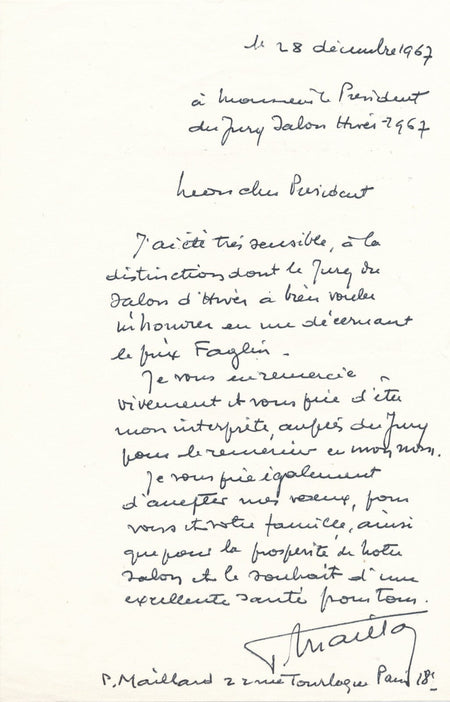 le 28 décembre 1967
à Monsieur le Président
du Jury Salon Hiver 1967
Mon cher Président
J'ai été très sensible, à la
distinction dont le Jury du
Salon d'Hiver a bien voulu
m'honorer en me décernant
le prix Faglin.
Je vous en remercie
vivement et vous prie d'être
mon interprète, auprès du Jury
pour le remercier en mon nom.
Je vous prie également
d'accepter mes voeux, pour
vous et votre famille, ainsi
que pour la prospérité de notre
Salon et le souhait d'une
excellente santé pour tous.
P Maillard
P. Maillard 22 rue Tourlaque Paris 18e